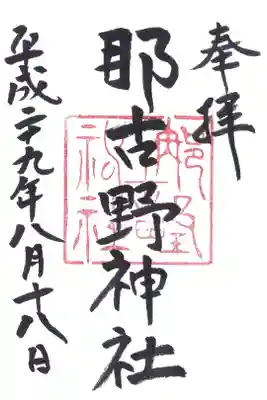 奉拝
那古野神社
平成二十九年八月十八日